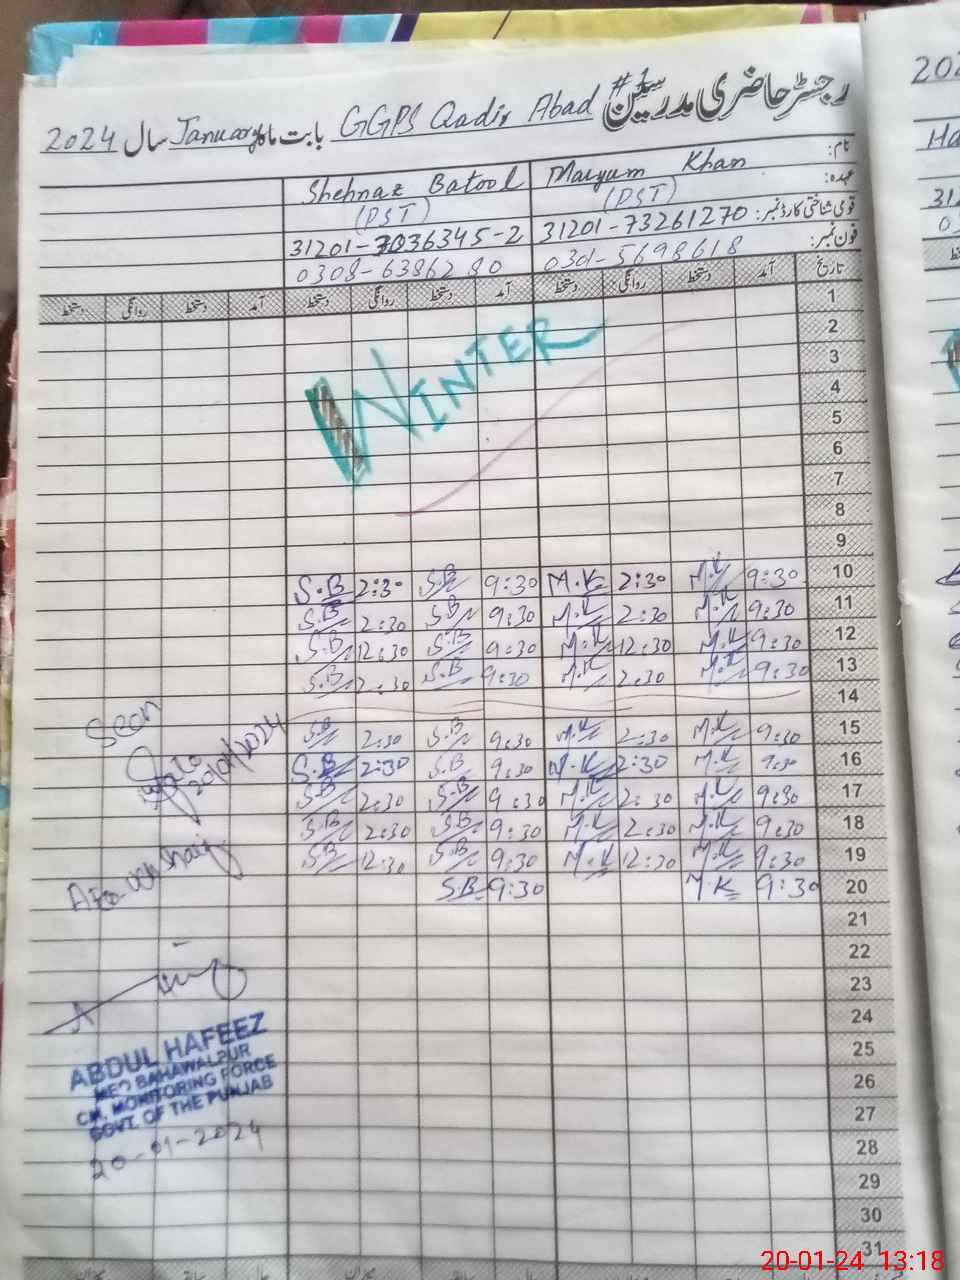 رجسٹر حاضری مدرسین #1 GGPS Qadir Abad بابت ماہ January سال 2024
نام: Maryum Khan Shehnaz Batool
عہدہ: (PST) (PST)
قومی شناختی کارڈ نمبر: 31201-73261270 31201-7036345-2
فون نمبر: 0301-5698618 0308-6386280
تاریخ آمد دستخط روانگی دستخط آمد دستخط روانگی دستخط آمد دستخط روانگی دستخط
1
2
WINTER
3
4
5
6
7
8
9
S.B 2:30 S.B 9:30 M.K 2:30 M.K 9:30 10
S.B 2:30 S.B 9:30 M.K 2:30 M.K 9:30 11
S.B 12:30 S.B 9:30 M.K 12:30 M.K 9:30 12
S.B 2:30 S.B 9:30 M.K 2:30 M.K 9:30 13
14
S.B 2:30 S.B 9:30 M.K 2:30 M.K 9:30 15
S.B 2:30 S.B 9:30 M.K 2:30 M.K 9:30 16
S.B 2:30 S.B 9:30 M.K 2:30 M.K 9:30 17
S.B 2:30 S.B 9:30 M.K 2:30 M.K 9:30 18
S.B 12:30 S.B 9:30 M.K 12:30 M.K 9:30 19
S.B 9:30 M.K 9:30 20
21
22
23
24
25
26
27
28
29
30
31
Seen
20/01/2024
ABDUL HAFEEZ
MEO BAHAWALPUR
CM. MONITORING FORCE
GOVT. OF THE PUNJAB
20-01-2024
202
Ha
312
03
20-01-24 13:18